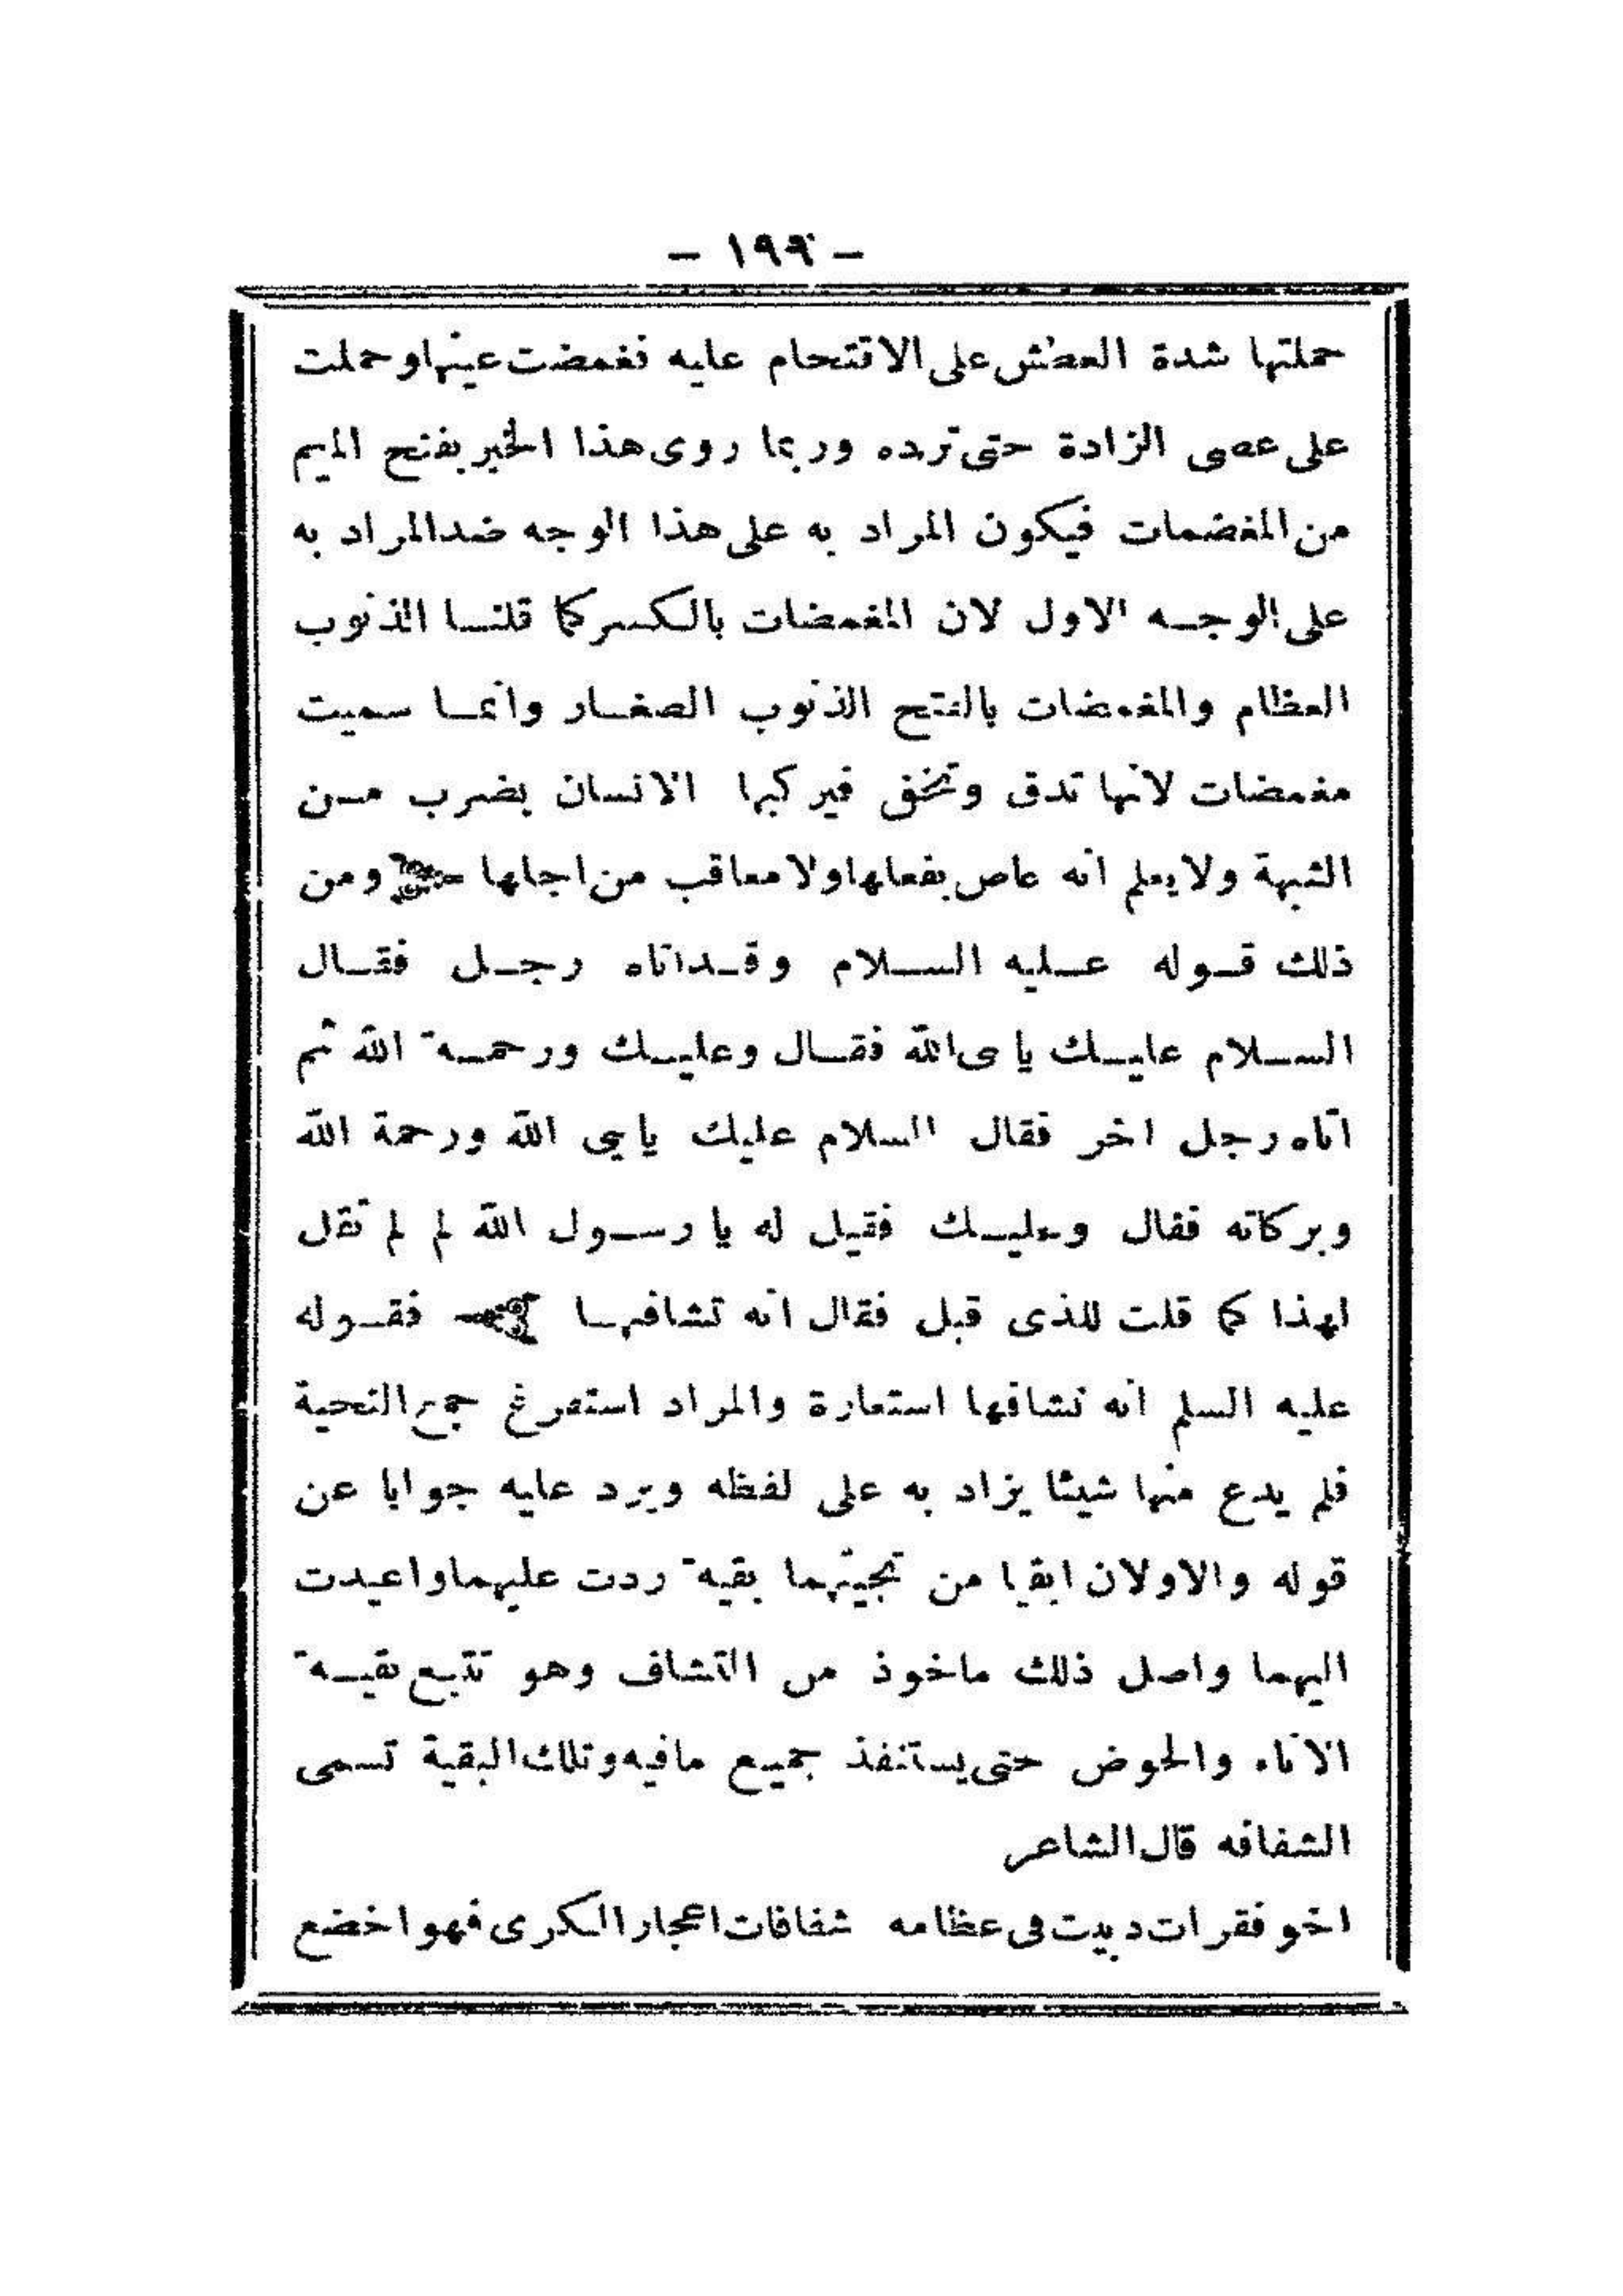 - ١٩٩ -
حملتها شدة العطش على الاقتحام عليه فغمضت عينها وحملت
على عصى الزادة حتى ترده وربما روى هذا الخبر بفتح الميم
من المغضمات فيكون المراد به على هذا الوجه ضد المراد به
على الوجه الاول لان المغمضات بالكسر كما قلنا الذنوب
العظام والمغمضات بالفتح الذنوب الصغار وانما سميت
مغمضات لانها تدق وتخفى فيركبها الانسان بضرب من
الشبهة ولا يعلم انه عاص بفعلها ولا معاقب من اجلها ومن
ذلك قوله عليه السلام وقد اتاه رجل فقال
السلام عليك يا نبى الله فقال وعليك ورحمة الله ثم
اتاه رجل اخر فقال السلام عليك يا نبى الله ورحمة الله
وبركاته فقال وعليك فقيل له يا رسول الله لم لم تقل
لهذا كما قلت للذى قبل فقال انه تشافها فقوله
عليه السلم انه تشافها استعارة والمراد استفرغ جميع التحية
فلم يدع منها شيئا يزاد به على لفظه ويرد عليه جوابا عن
قوله والاولان ابقيا من تحيتهما بقية ردت عليهما واعيدت
اليهما واصل ذلك ماخوذ من التشاف وهو تتبع بقية
الاناء والحوض حتى يستنفذ جميع ما فيه وتلك البقية تسمى
الشفافه قال الشاعر
اخو فقرات دببت فى عظامه شفافات اعجار الكرى فهو اخضع